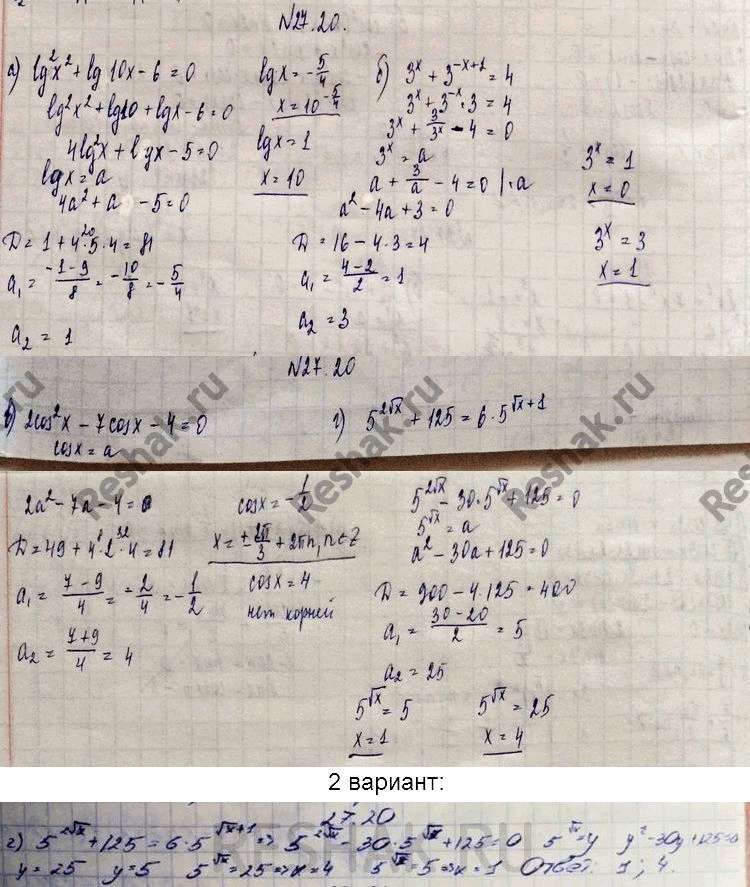 N27.20.
а) lg²x² + lg 10x - 6 = 0
lg²x² + lg10 + lgx - 6 = 0
4lg²x + lgx - 5 = 0
lgx = a
4a² + a - 5 = 0
D = 1 + 4·5·4 = 81
20
a₁ = (-1-9)/8 = -10/8 = -5/4
a₂ = 1
lgx = -5/4
x = 10^(-5/4)
lgx = 1
x = 10
б) 3^x + 3^(-x+1) = 4
3^x + 3^(-x)·3 = 4
3^x + 3/3^x - 4 = 0
3^x = a
a + 3/a - 4 = 0 |·a
a² - 4a + 3 = 0
D = 16 - 4·3 = 4
a₁ = (4-2)/2 = 1
a₂ = 3
3^x = 1
x = 0
3^x = 3
x = 1
N27.20
в) 2cos²x - 7cosx - 4 = 0
cosx = a
2a² - 7a - 4 = 0
D = 49 + 4·2·4 = 81
8 32
a₁ = (7-9)/4 = -2/4 = -1/2
a₂ = (7+9)/4 = 4
cosx = -1/2
x = ± 2π/3 + 2πn, n∈Z
cosx = 4
нет корней
г) 5^(2√x) + 125 = 6·5^(√x+1)
5^(2√x) - 30·5^(√x) + 125 = 0
5^(√x) = a
a² - 30a + 125 = 0
D = 900 - 4·125 = 400
a₁ = (30-20)/2 = 5
a₂ = 25
5^(√x) = 5
x = 1
5^(√x) = 25
x = 4
Reshak.ru
2 вариант:
27.20
г) 5^(2√x) + 125 = 6·5^(√x+1) => 5^(2√x) - 30·5^(√x) + 125 = 0 5^(√x) = y y² - 30y + 125 = 0
y = 25 y = 5 5^(√x) = 25 => x = 4 5^(√x) = 5 => x = 1 Ответ: 1; 4.
RESHAK.RU